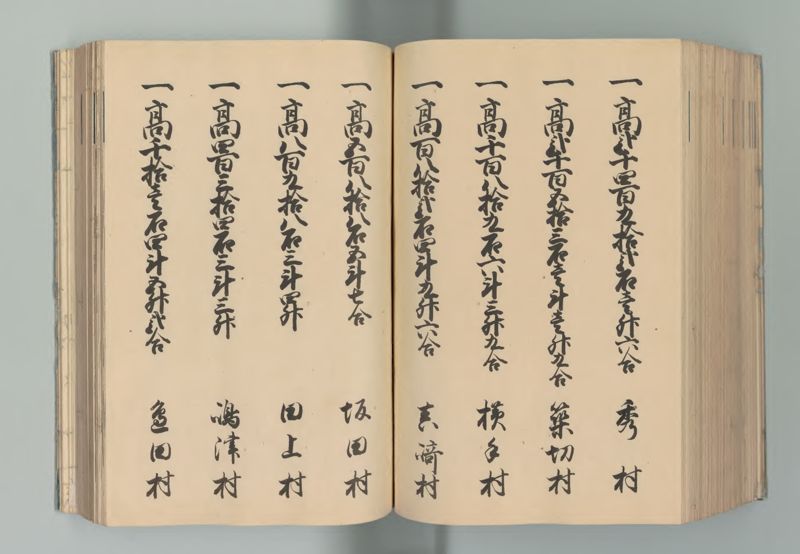 一高弐千四百九拾弐石壱升六合 秀村
一高弐千百五拾三石壱斗壱升九合 築切村
一高千百八拾九石六斗三升九合 横手村
一高百八拾弐石四斗九升六合 吉崎村
一高五百八拾八石五斗七合 坂田村
一高八百九拾八石三斗四升 田上村
一高四百三拾四石三斗三升 嶋津村
一高千拾壱石四斗五升弐合 田村